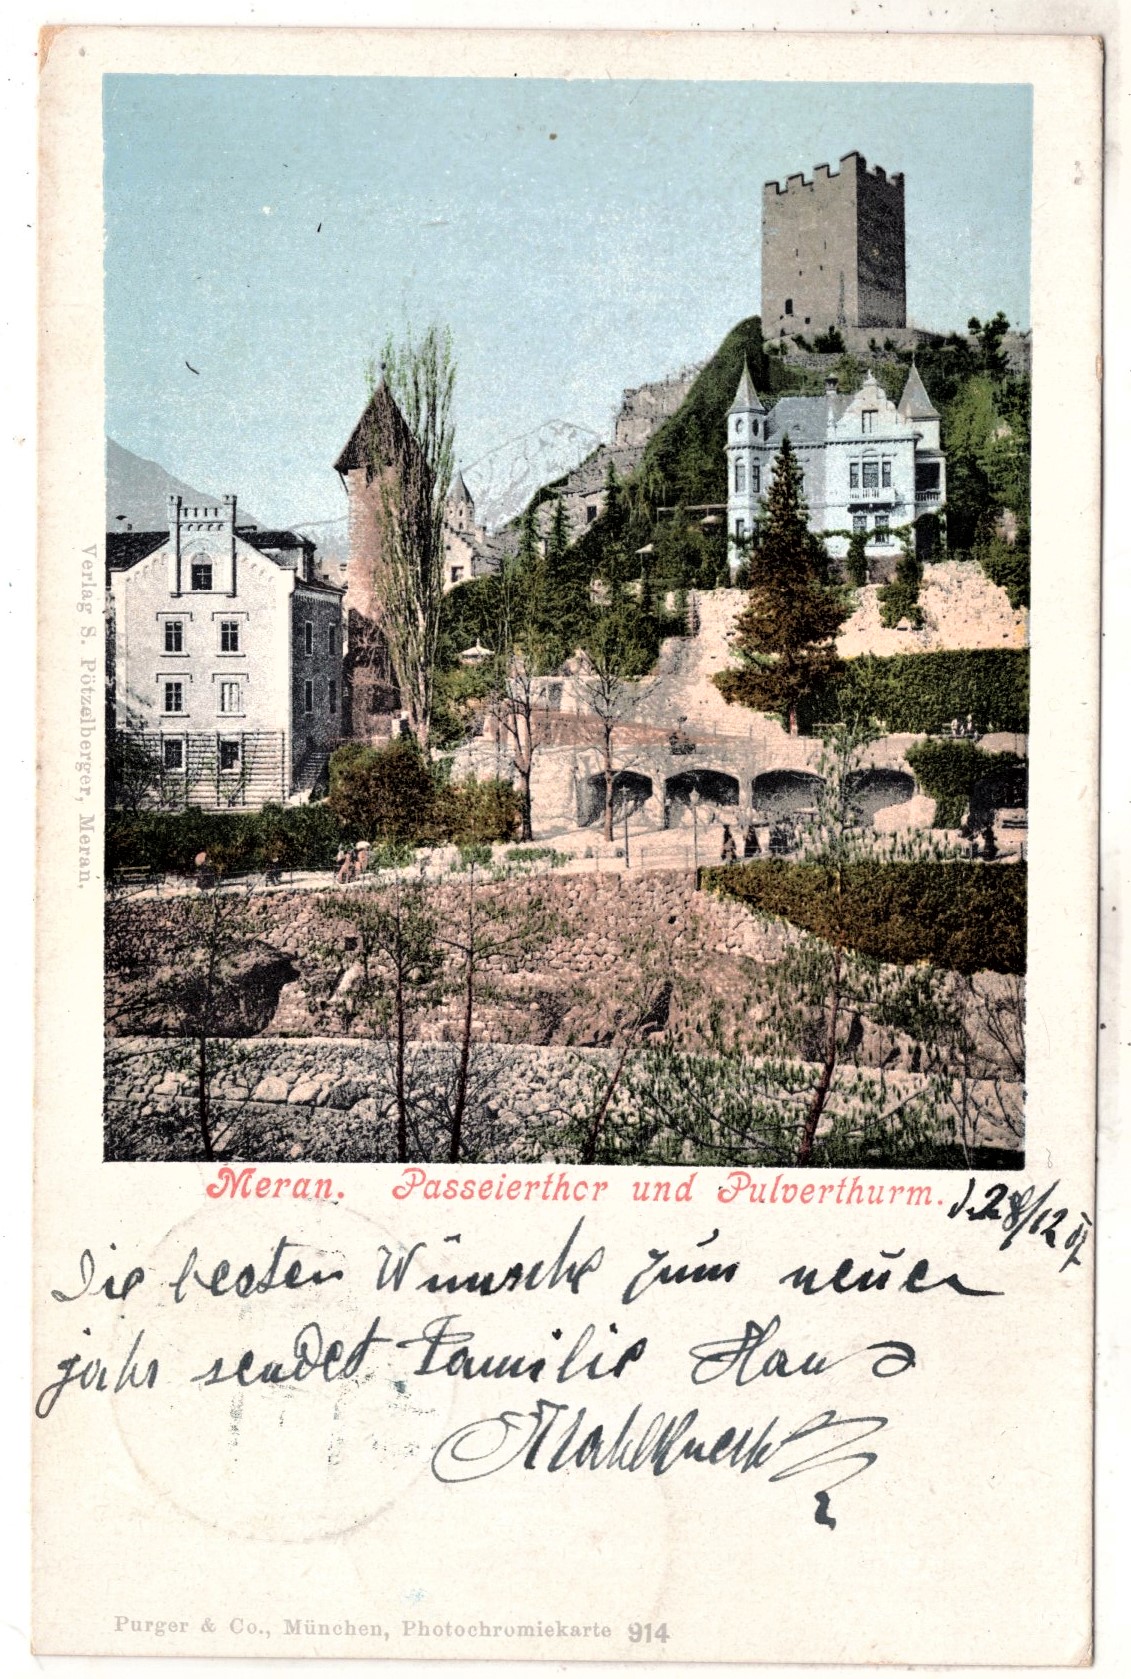 Verlag S. Pötzelberger, Meran.
Meran. Passeierthor und Pulverthurm.
28/12
Die besten Wünsche zum neuen
jahr sendet Familie Hans
Mahlknecht
Purger & Co., München, Photochromiekarte 914